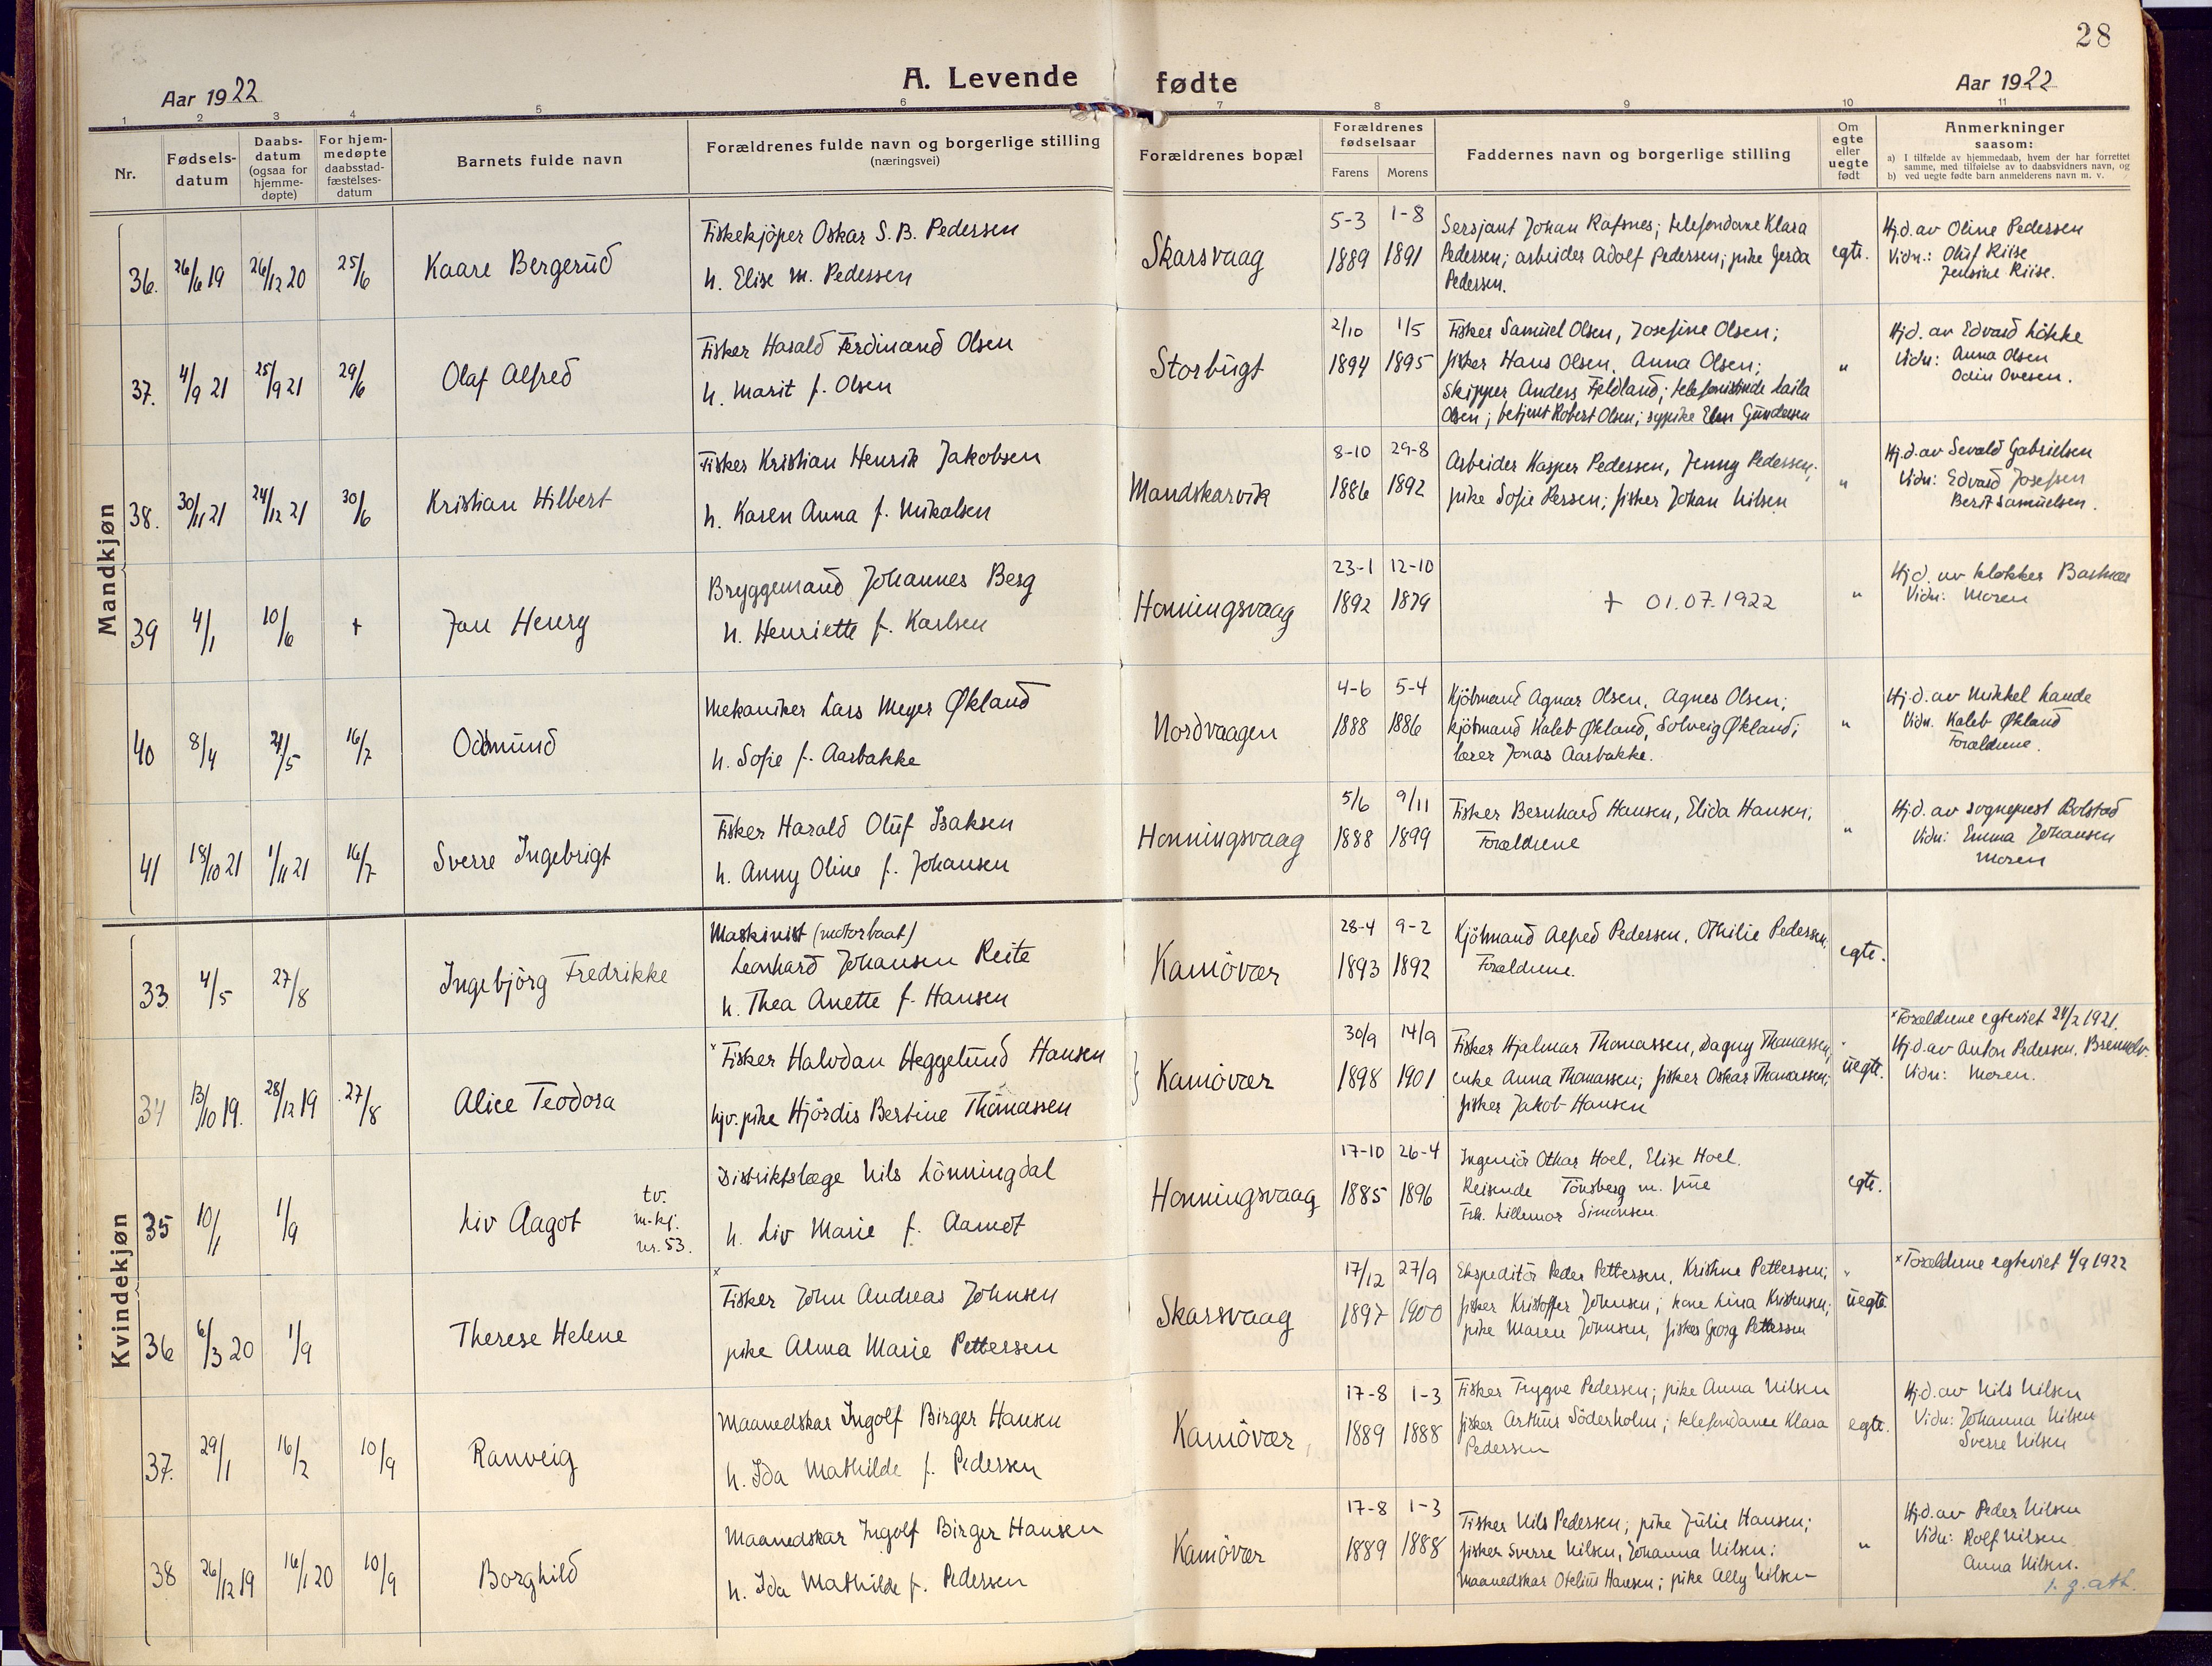 28
Aar 1922
A. Levende fødte
Aar 1922
1 2 3 4 5 6 7 8 9 10 11
Nr.
Fødsels-
datum
Daabs-
datum
(ogsaa for
hjemme-
døpte)
For hjem-
medøpte
daabsstad-
fæstelses-
datum
Barnets fulde navn
Forældrenes fulde navn og borgerlige stilling
(næringsvei)
Forældrenes bopæl
Forældrenes
fødselsaar
Farens Morens
Faddernes navn og borgerlige stilling
Om
egte
eller
uegte
født
Anmerkninger
saasom:
a) I tilfælde av hjemmedaab, hvem der har forrettet
samme, med tilføielse av to daabsvidners navn, og
b) ved uegte fødte barn anmelderens navn m. v.
Mandkjøn
36. 26/6 19 26/12 20 25/6 Kaare Bergerud
Fiskekjöper Oskar S. B. Pedersen
h. Elise M. Pedersen
Skarsvaag
5-3 1-8
1889 1891
Sersjant Johan Rafsnes; telefondame Klara
Pedersen; arbeider Adolf Pedersen; pike Gerda
Pedersen.
egte.
Hj.d. av Oline Pedersen
Vidn.: Oluf Riise
Jensine Riise.
37. 4/9 21 25/9 21 29/6 Olaf Alfred
Fisker Harald Ferdinand Olsen
h. Marit f. Olsen
Storbugt
2/10 1/5
1894 1895
Fisker Samuel Olsen, Josefine Olsen;
fisker Hans Olsen, Anna Olsen;
Skipper Anders Fjeldland; telefonistinde Laila
Olsen; betjent Robert Olsen; sypike Elen Gundersen
"
Hj.d. av Edvard Lökke
Vidn: Anna Olsen
Odin Ovesen.
38. 30/11 21 24/12 21 30/6 Kristian Hilbert
Fisker Kristian Henrik Jakobsen
h. Karen Anna f. Mikalsen
Mandskarvik
8-10 29-8
1886 1892
Arbeider Kasper Pedersen, Jenny Pedersen;
pike Sofie Persen; fisker Johan Nilsen
"
Hj.d. av Sevald Gabrielsen
Vidn: Edvard Josefsen
Berit Samuelsen.
39 4/1 10/6 + Jan Henry
Bryggemand Johannes Berg
h. Henriette f. Karlsen
Honningsvaag
23-1 12-10
1892 1879
+ 01.07.1922
"
Hj.d. av klokker
Vidn: Moren
40 8/4 21/5 16/7 Oddmund
Mekaniker Lars Meyer Økland
h. Sofie f. Aarbakke
Nordvaagen
4-6 5-4
1888 1886
Kjöbmand Agnar Olsen, Agnes Olsen;
kjöbmand Kaleb Økland, Solveig Økland;
lærer Jonas Aarbakke.
"
Hj.d. av Mikkel Lande
Vidn. Kaleb Økland
Forældrene.
41 18/10 21 1/11 21 16/7 Sverre Ingebrigt
Fisker Harald Oluf Isaksen
h. Anny Oline f. Johansen
Honningsvaag
5/6 9/11
1888 1899
Fisker Bernhard Hansen, Elida Hansen,
Forældrene
"
Hj.d. av sogneprest Bolstad
Vidn: Emma Johansen
Moren
Kvindekjøn
33 4/5 27/8 Ingebjörg Fredrikke
Maskinist (motorbaat)
Leonhard Johansen Reite
h. Thea Anette f. Hansen
Kamövær
28-4 9-2
1893 1892
Kjöbmand Alfred Pedersen, Othilie Pedersen.
Forældrene.
egte.
34 13/10 19. 28/12 19 27/8 Alice Teodora
x Fisker Halvdan Heggelund Hansen
hjv. pike Hjördis Bertine Thomassen
} Kamövær
30/9 14/9
1898 1901
Fisker Hjalmar Thomassen, Dagny Thomassen;
enke Anna Thomassen; fisker Oskar Thomassen;
fisker Jakob Hansen
uegte.
x Forældrene egteviet 24/2 1921.
Hj.d. av Anton Pedersen,
Vidn: Moren.
35 10/1 1/9 Liv Aagot
tv.
m.kj.
nr. 53.
Distriktslæge Nils Lönningdal
h. Liv Marie f. Aamot
Honningsvaag
17-10 26-4
1885 1896
Ingeniör Othar Hoel, Elise Hoel.
Reisende Tönsberg m. frue
Frk. Lillemor Simonsen.
egte.
36 6/3 20 1/9 Therese Helene
x
Fisker John Andreas Johnsen
pike Alma Marie Pettersen
Skarsvaag
17/12 27/9
1897 1900
Ekspeditör Peder Pettersen, Kristine Pettersen;
fisker Kristoffer Johnsen; kone Lina Kristensen;
pike Maren Johnsen, fisker Georg Pettersen
uegte
x Forældrene egteviet 4/9 1922
37. 29/1 16/2 10/9 Ranveig
Maanedskar Ingolf Birger Hansen
h. Ida Mathilde f. Pedersen
Kamövær
17-8 1-3
1889 1888
Fisker Trygve Pedersen; pike Anna Nilsen
fisker Arthur Söderholm; telefondame Klara
Pedersen
egte.
Hj.d. av Nils Nilsen
Vidn: Johanna Nilsen
Sverre Nilsen
38 26/12 19 16/1 20 10/9 Borghild
Maanedskar Ingolf Birger Hansen
h. Ida Mathilde f. Pedersen
Kamövær
17-8 1-3
1889 1888
Fisker Nils Pedersen; pike Julie Hansen;
fisker Sverre Nilsen, Johanna Nilsen;
Maanedskar Otelius Hansen; pike Ally Nilsen
"
Hj.d. av Peder Nilsen
Vidn: Rolf Nilsen
Anna Nilsen.
1. g. att.